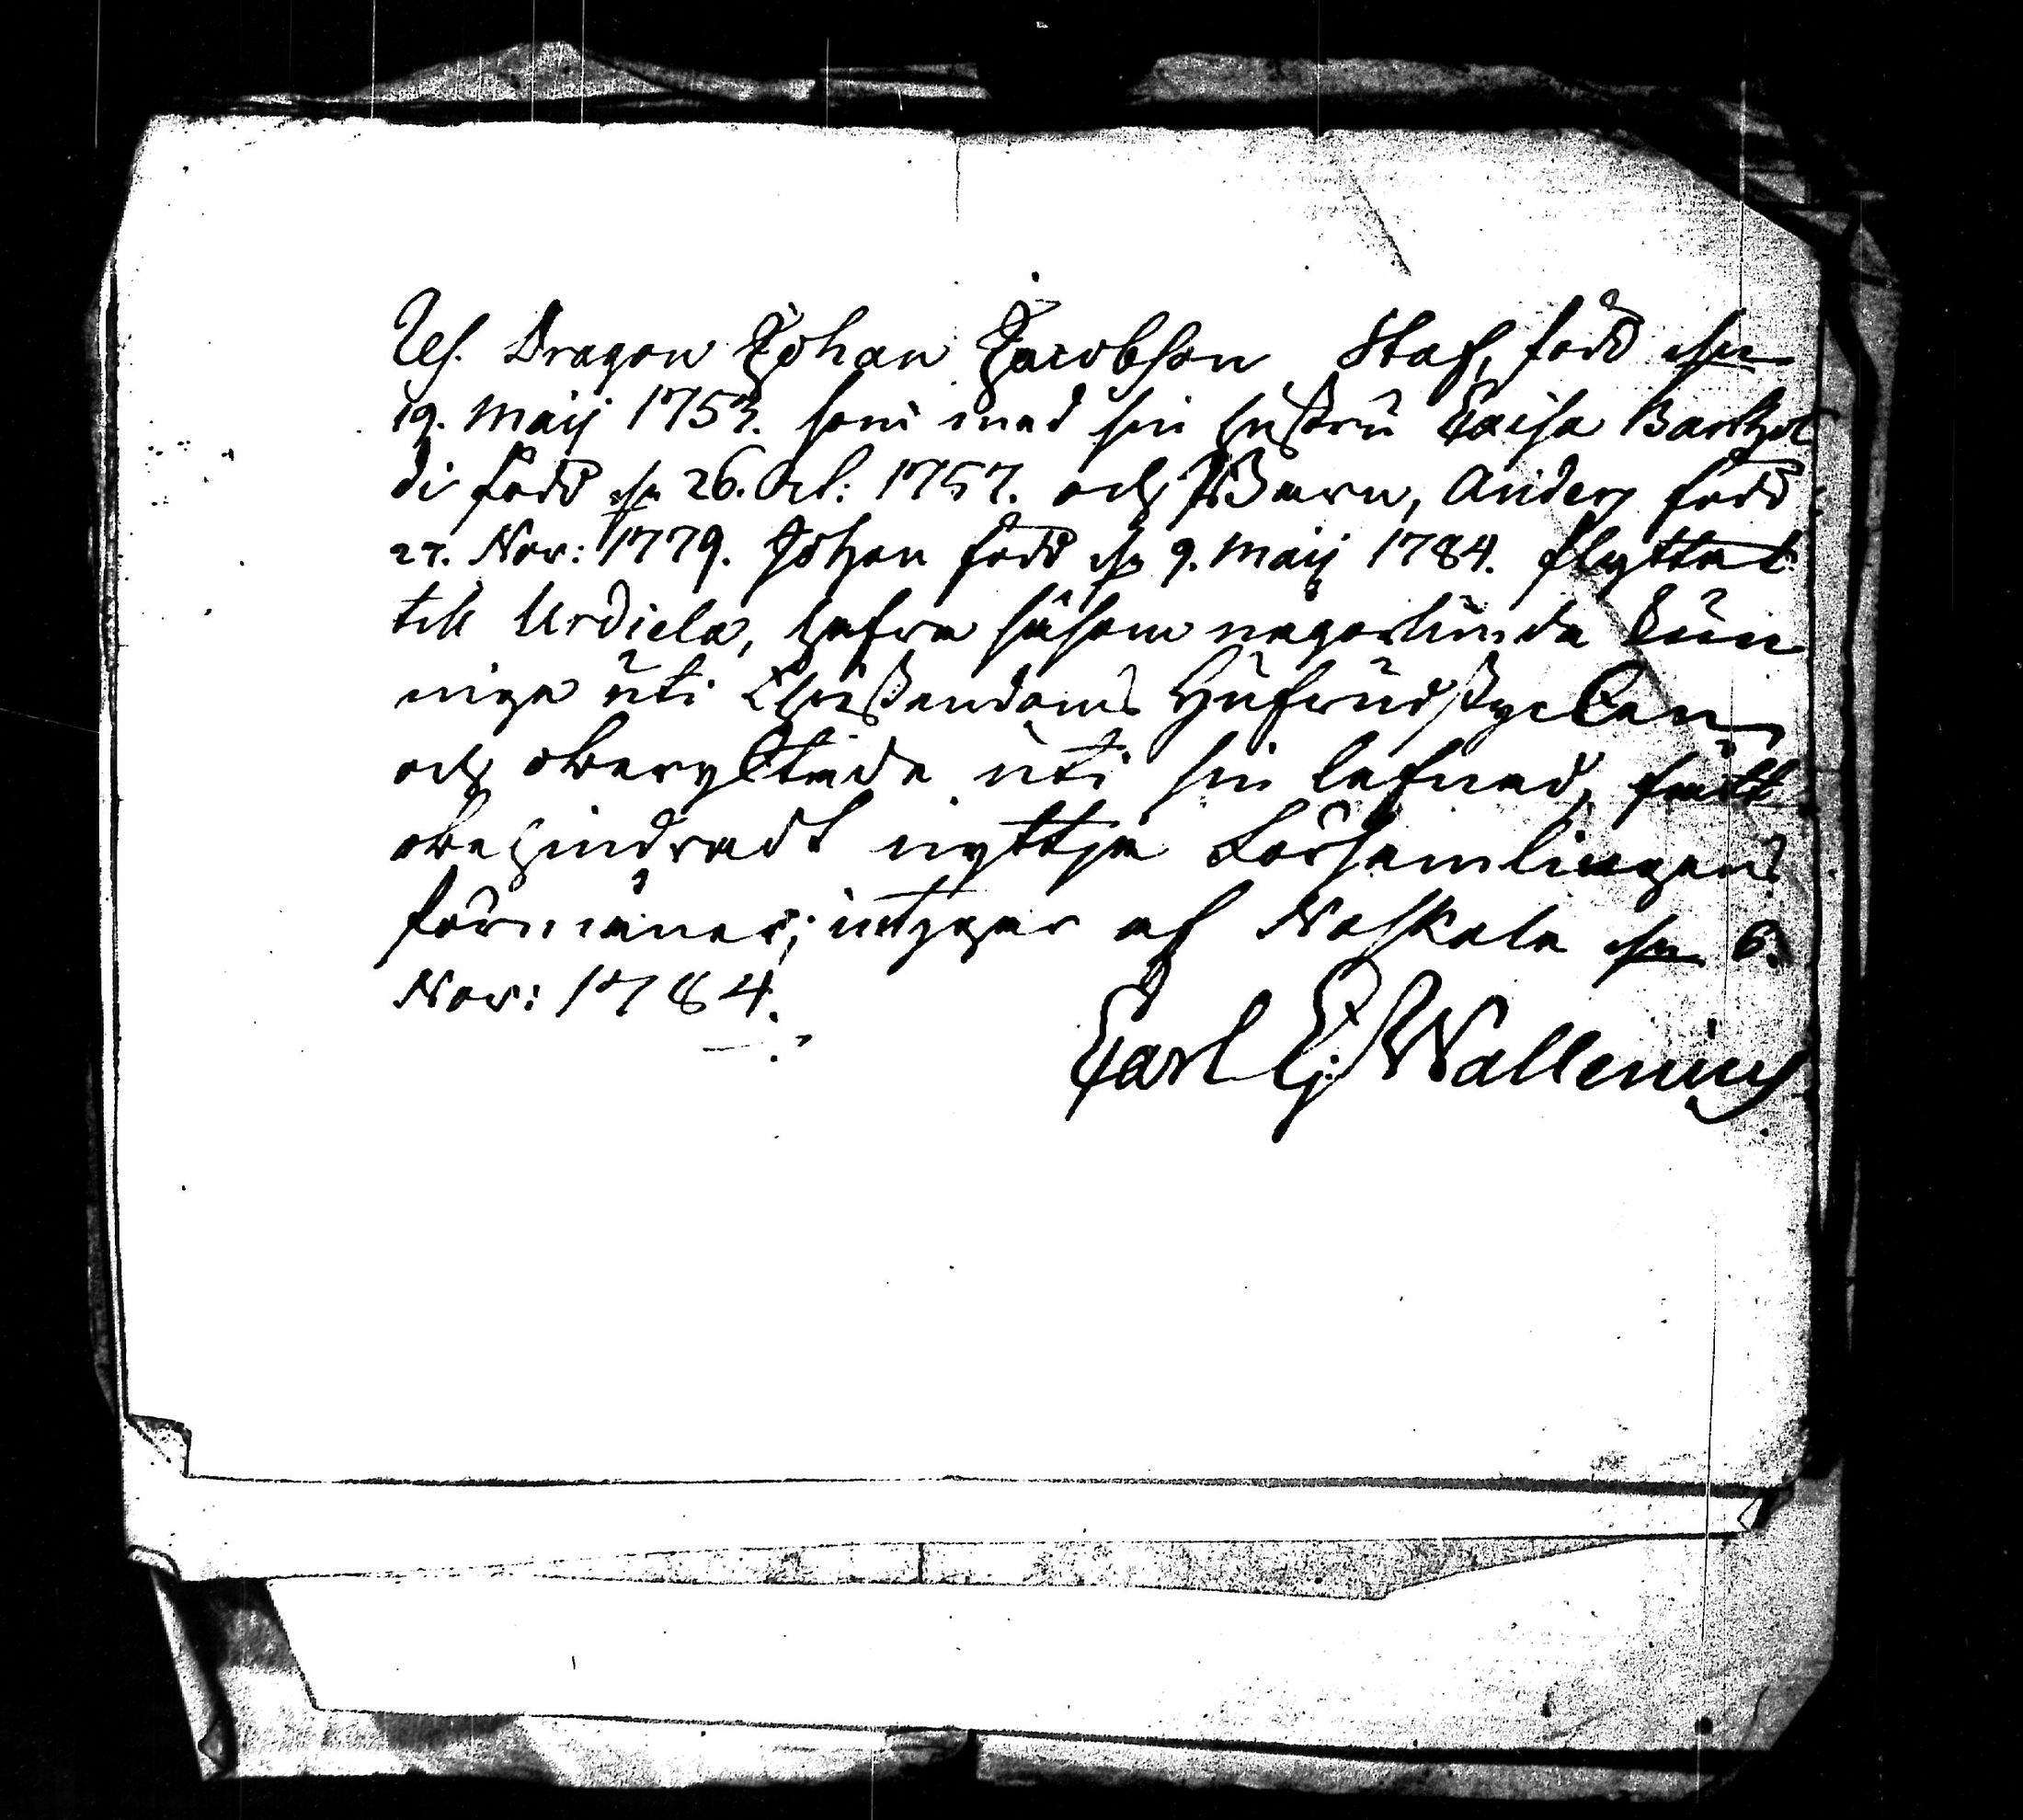 Ref. Dragon Johan Jacobsson Staf, född den
19. Maij 1753. som med sin hustru Caisa Barthol
di född den 26. Oct: 1757. och Barn, Anders född
27. Nov: 1779. Johan född den 9. Maij 1784. flyttat
till Urdiela, hafva såsom någorlunda kun
nige uti Christendoms Hufvudstycken
och oberyktade uti sin lefnad, fått
obehindradt nyttja Församlingens
förmåner; intygar af Naskala den 6.
Nov: 1784.
Carl G: Wallenius